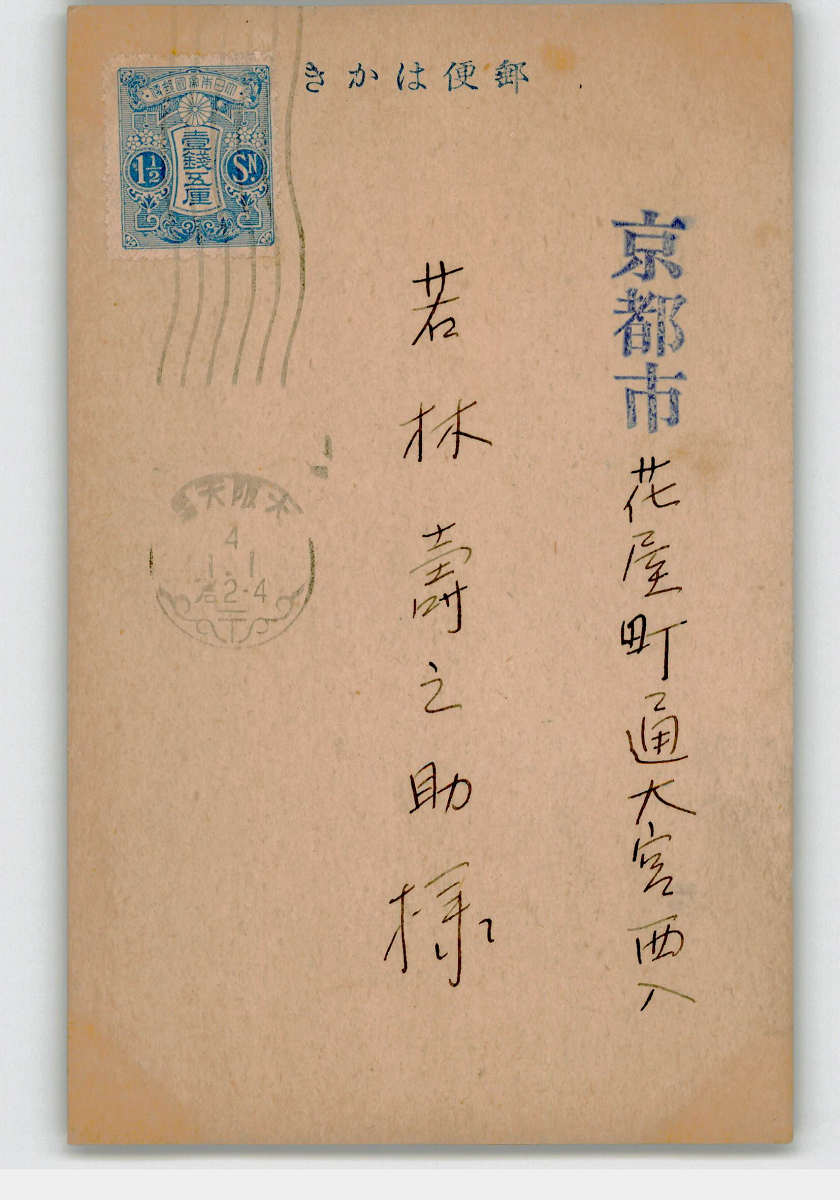 郵便はかき
大日本帝國郵便
壹錢五厘
1½
SN.
京都市花屋町通大宮西入
若林壽之助様
4
1.1
2-4